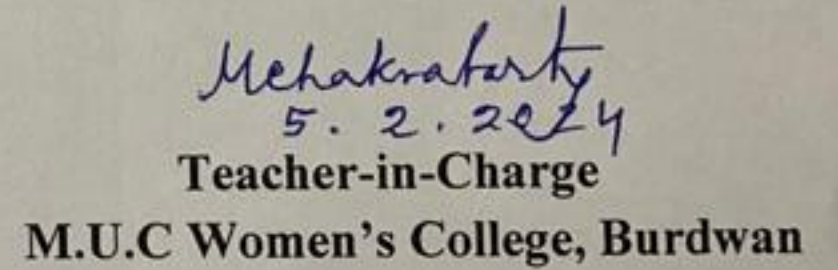 Mchakrabarty
5.2.2024
Teacher-in-Charge
M.U.C Women's College, Burdwan